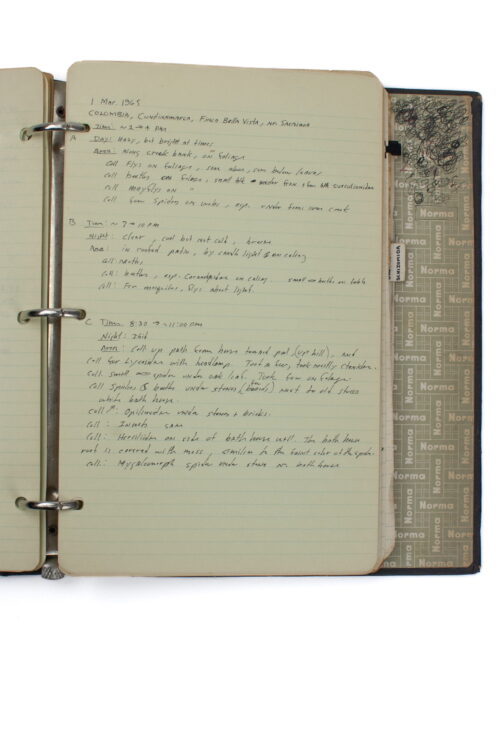 1 Mar. 1965
COLOMBIA, Cundinamarca, Finca Bella Vista, nr Sasaima
Time: ~ 2 → 4 PM
A Day: Hazy, but bright at times
Area: Along creek bank, on foliage
Coll flys on foliage, some above, some below leaves
Coll beetles on foliage, small blk
Coll mayflys on "
Coll few spiders on water, esp. under
B Time: ~ 7 → 10 PM
Night: Clear, cool but not cold, breeze
Area: in roofed patio, by candle light on ceiling
Coll: moths
Coll: beetles, esp. on ceiling small on table
Coll: Few mosquitos, flys about light.
C Time: 8:30 → ~11:00 PM
Night: Ibid
Area: Coll up path from house toward (up hill), and
coll for Lycosidae with headlamp. Took a few, took mostly
Coll: small spider under oak leaf. Took few on foliage.
Coll Spiders & beetles under stones (boards) next to old
white bath house.
Coll: Opilionidae under stones + bricks.
Coll: 2 newts same
Coll: Hersiliidae on side of bath house wall. The bath house
wall is covered with moss, similar to the color of the spider.
Coll: Mygalomorph spider under stone nr bath house.
SCHIZOMIDA
Norma
Norma
Norma
Norma
Norma
Norma
Norma
Norma
Norma